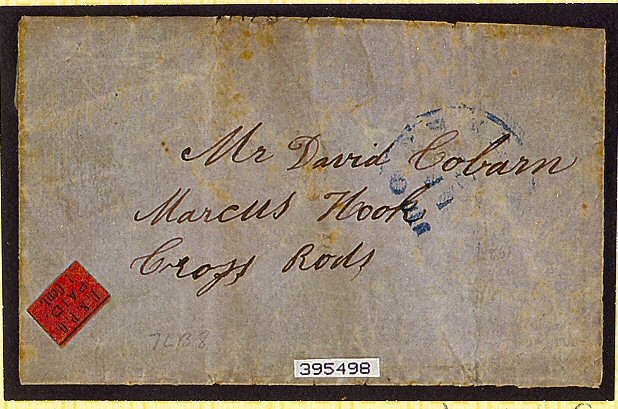 Mr David Cobarn
Marcus Hook
Cross Rods
PAID
7LB8
395498